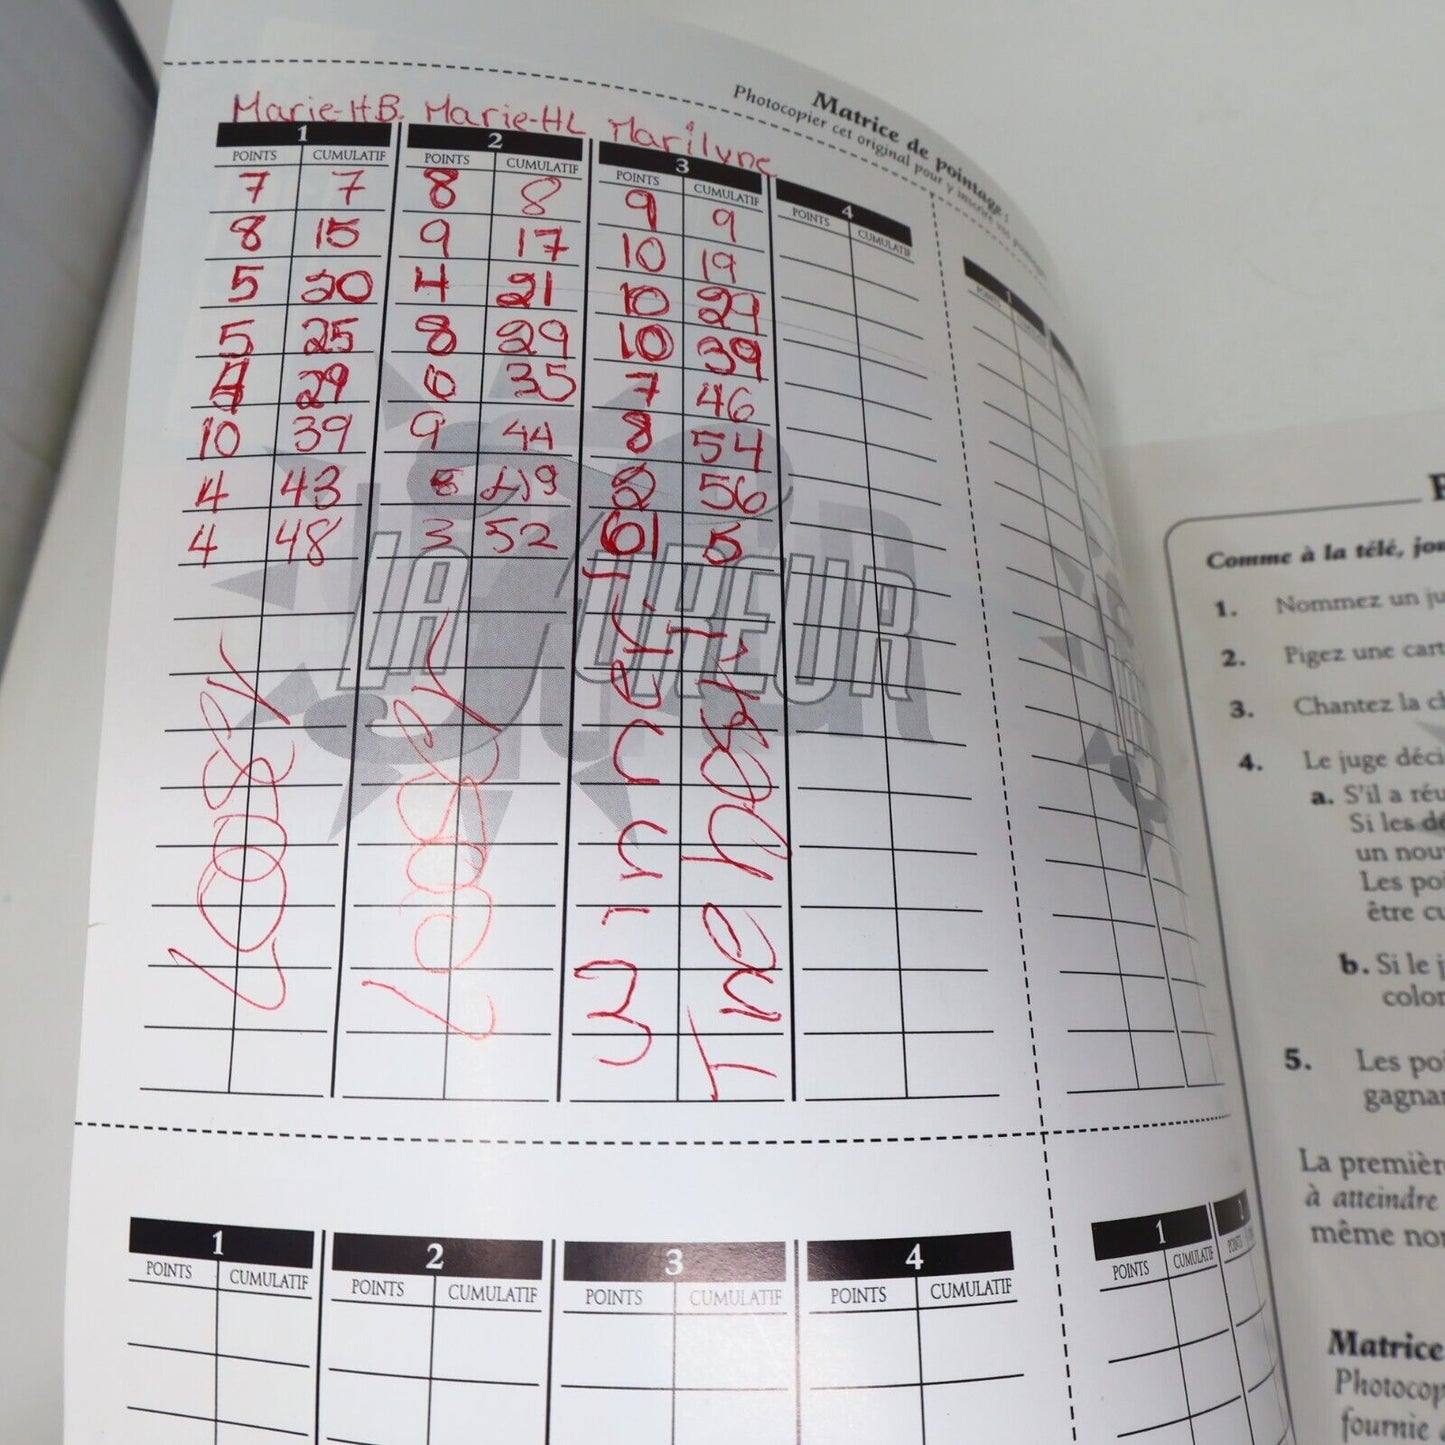 Matrice de pointage :
Photocopier cet original pour y inscrire vos pointages
Marie-HB. Marie-HL Marilyne
1 2 3 4
POINTS CUMULATIF POINTS CUMULATIF POINTS CUMULATIF POINTS CUMULATIF
7 7 8 8 9 9
8 15 9 17 10 19
5 20 4 21 10 29
5 25 8 29 10 39
4 29 6 35 7 46
10 39 9 44 8 54
4 43 49 2 56
4 48 3 52 61 5
LA FUREUR
Looser
Looser
Winner
The best
1 2 3 4
POINTS CUMULATIF POINTS CUMULATIF POINTS CUMULATIF POINTS CUMULATIF
1
POINTS CUMULATIF
Comme à la télé, jou
1. Nommez un ju
2. Pigez une cart
3. Chantez la ch
4. Le juge déci
a. S'il a réu
Si les dé
un nouv
Les poi
être cu
b. Si le j
color
5. Les poi
gagnan
La premièr
à atteindre
même nom
Matrice
Photocop
fournie